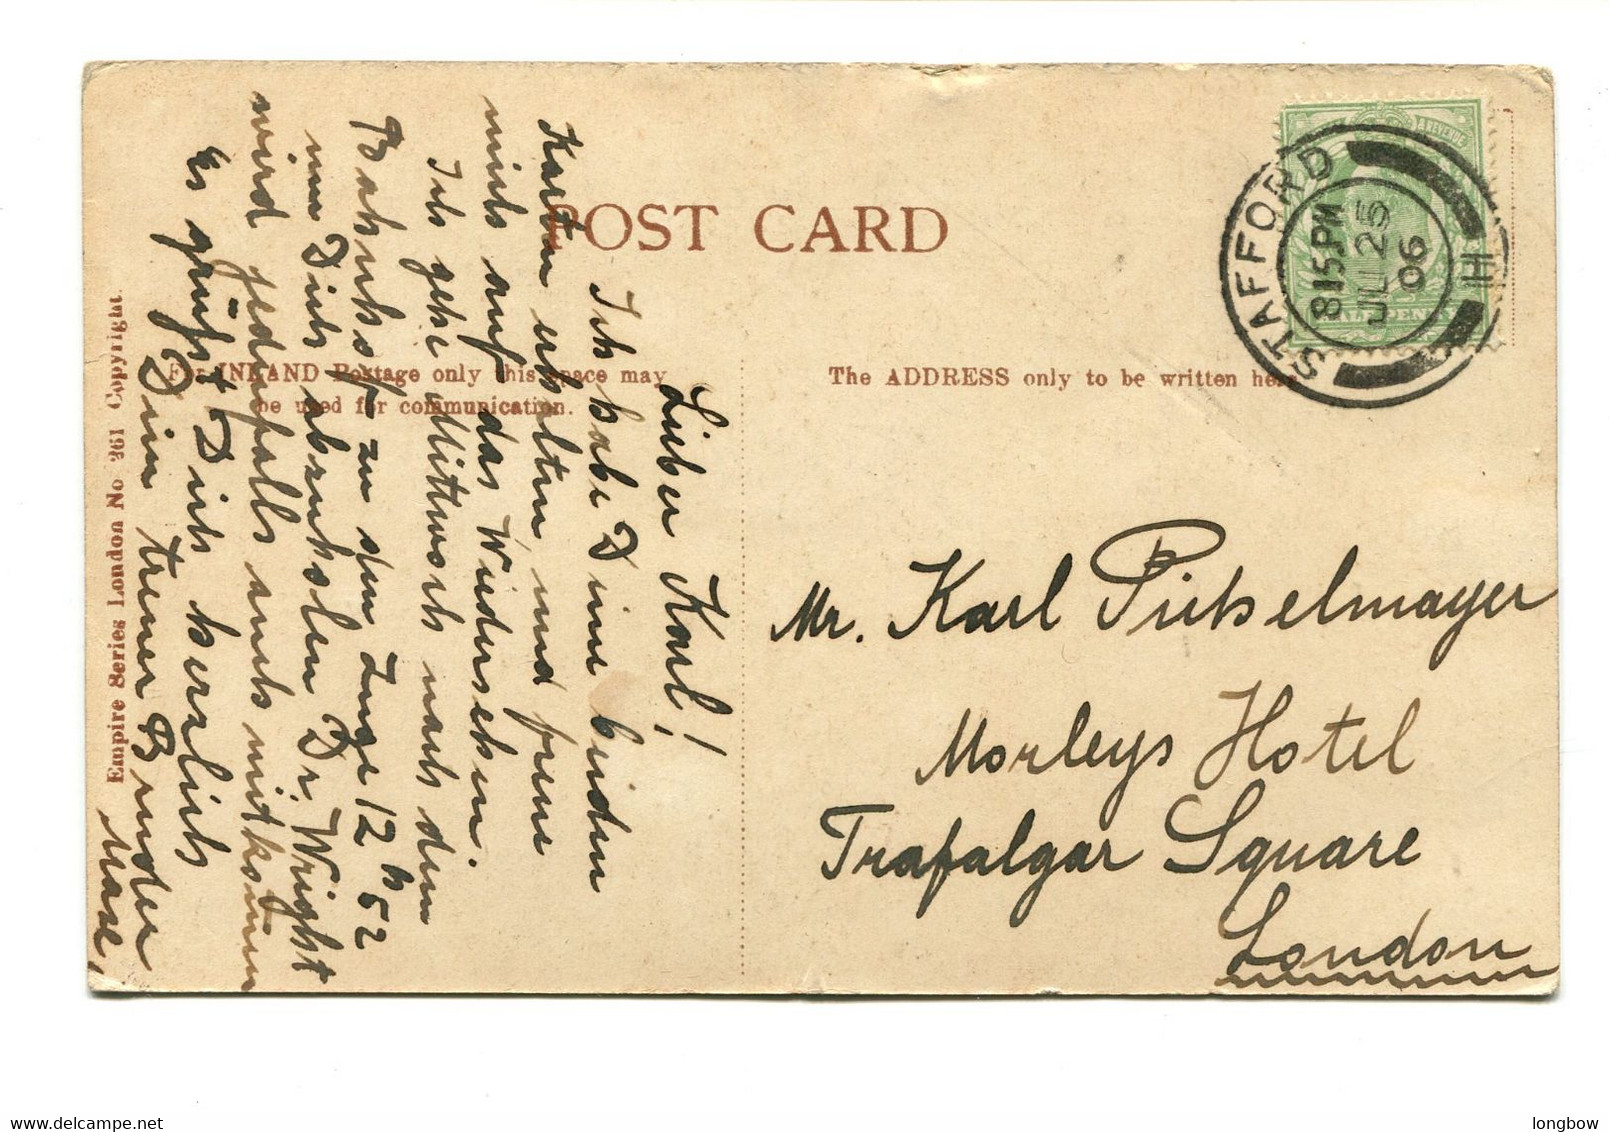 POST CARD
For INLAND Postage only this space may
be used for communication.
The ADDRESS only to be written here
Empire Series London No 261 Copyright.
STAFFORD
8 15 PM
JUL 25
06
H
& REVENUE
HALF PENNY
Mr. Karl Pichselmayer
Morleys Hotel
Trafalgar Square
London
Lieber Karl!
Ich habe Deine beiden
Karten erhalten und freue
mich auf das Wiedersehen.
Ich gehe Mittwoch nach dem
Bahnhof zu dem Zuge 12 h 52
um Dich abzuholen Dr. Wright
wird jedenfalls auch mitkommen
Es grüßt Dich herzlich
Dein treuer Bruder
longbow